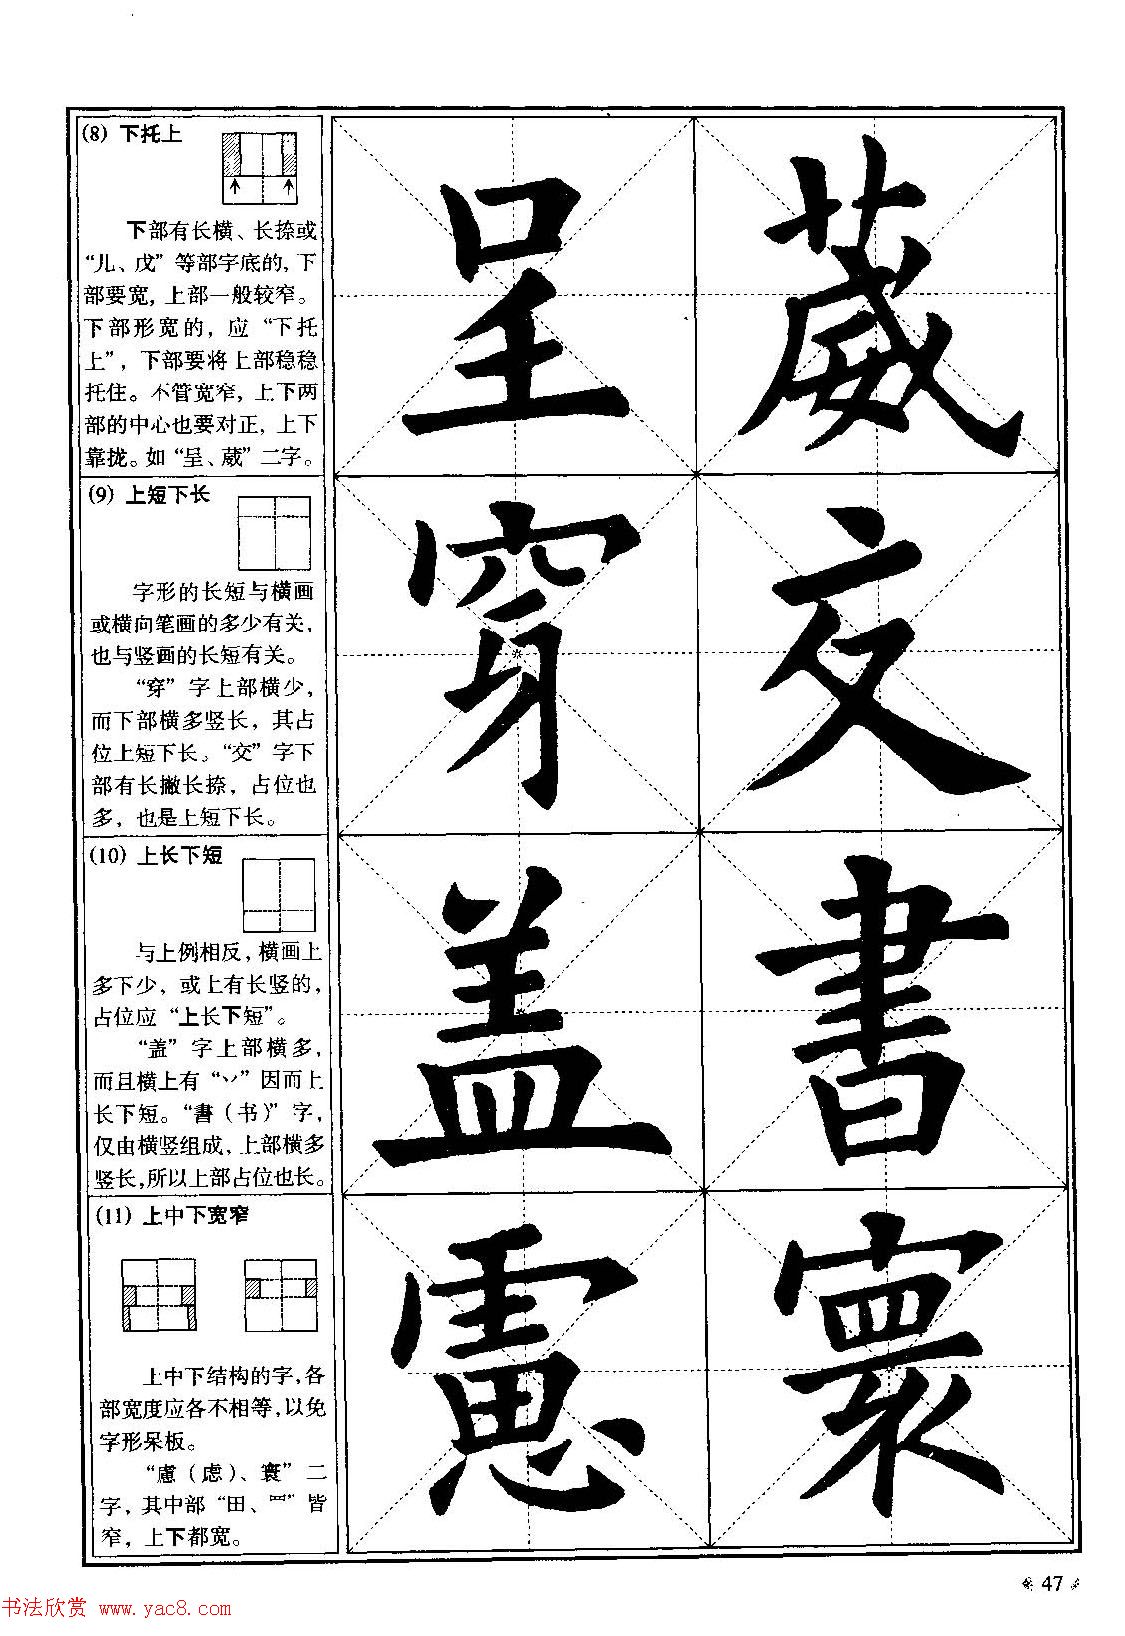 (8) 下托上
下部有长横、长捺或
“儿、戊”等部字底的，下
部要宽，上部一般较窄。
下部形宽的，应“下托
上”，下部要将上部稳稳
托住。不管宽窄，上下两
部的中心也要对正，上下
靠拢。如“呈、葳”二字。
(9) 上短下长
字形的长短与横画
或横向笔画的多少有关，
也与竖画的长短有关。
“穿”字上部横少，
而下部横多竖长，其占
位上短下长。“交”字下
部有长撇长捺，占位也
多，也是上短下长。
(10) 上长下短
与上例相反，横画上
多下少，或上有长竖的，
占位应“上长下短”。
“盖”字上部横多，
而且横上有“丷”因而上
长下短。“書（书）”字，
仅由横竖组成，上部横多
竖长，所以上部占位也长。
(11) 上中下宽窄
上中下结构的字，各
部宽度应各不相等，以免
字形呆板。
“慮（虑）、寰”二
字，其中部“田、罒”皆
窄，上下都宽。
呈 葳
穿 交
盖 書
慮 寰
47
书法欣赏 www.yac8.com